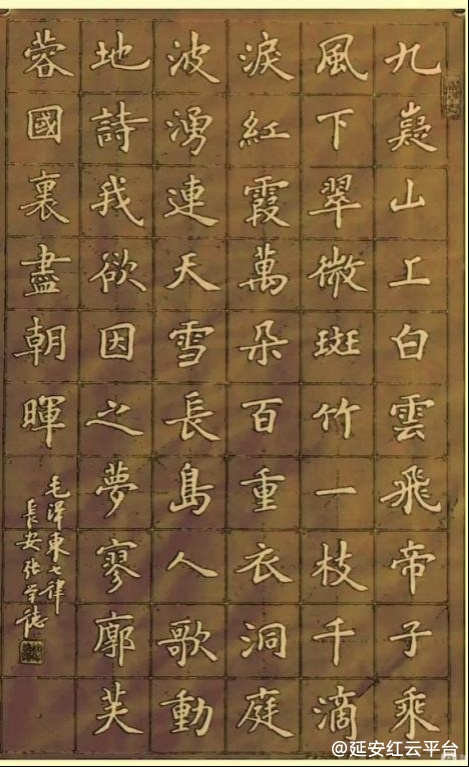 九嶷山上白雲飛帝子乘
風下翠微斑竹一枝千滴
淚紅霞萬朵百重衣洞庭
波湧連天雪長島人歌動
地詩我欲因之夢寥廓芙
蓉國裏盡朝暉
毛澤東七律
長安张
@延安红云平台